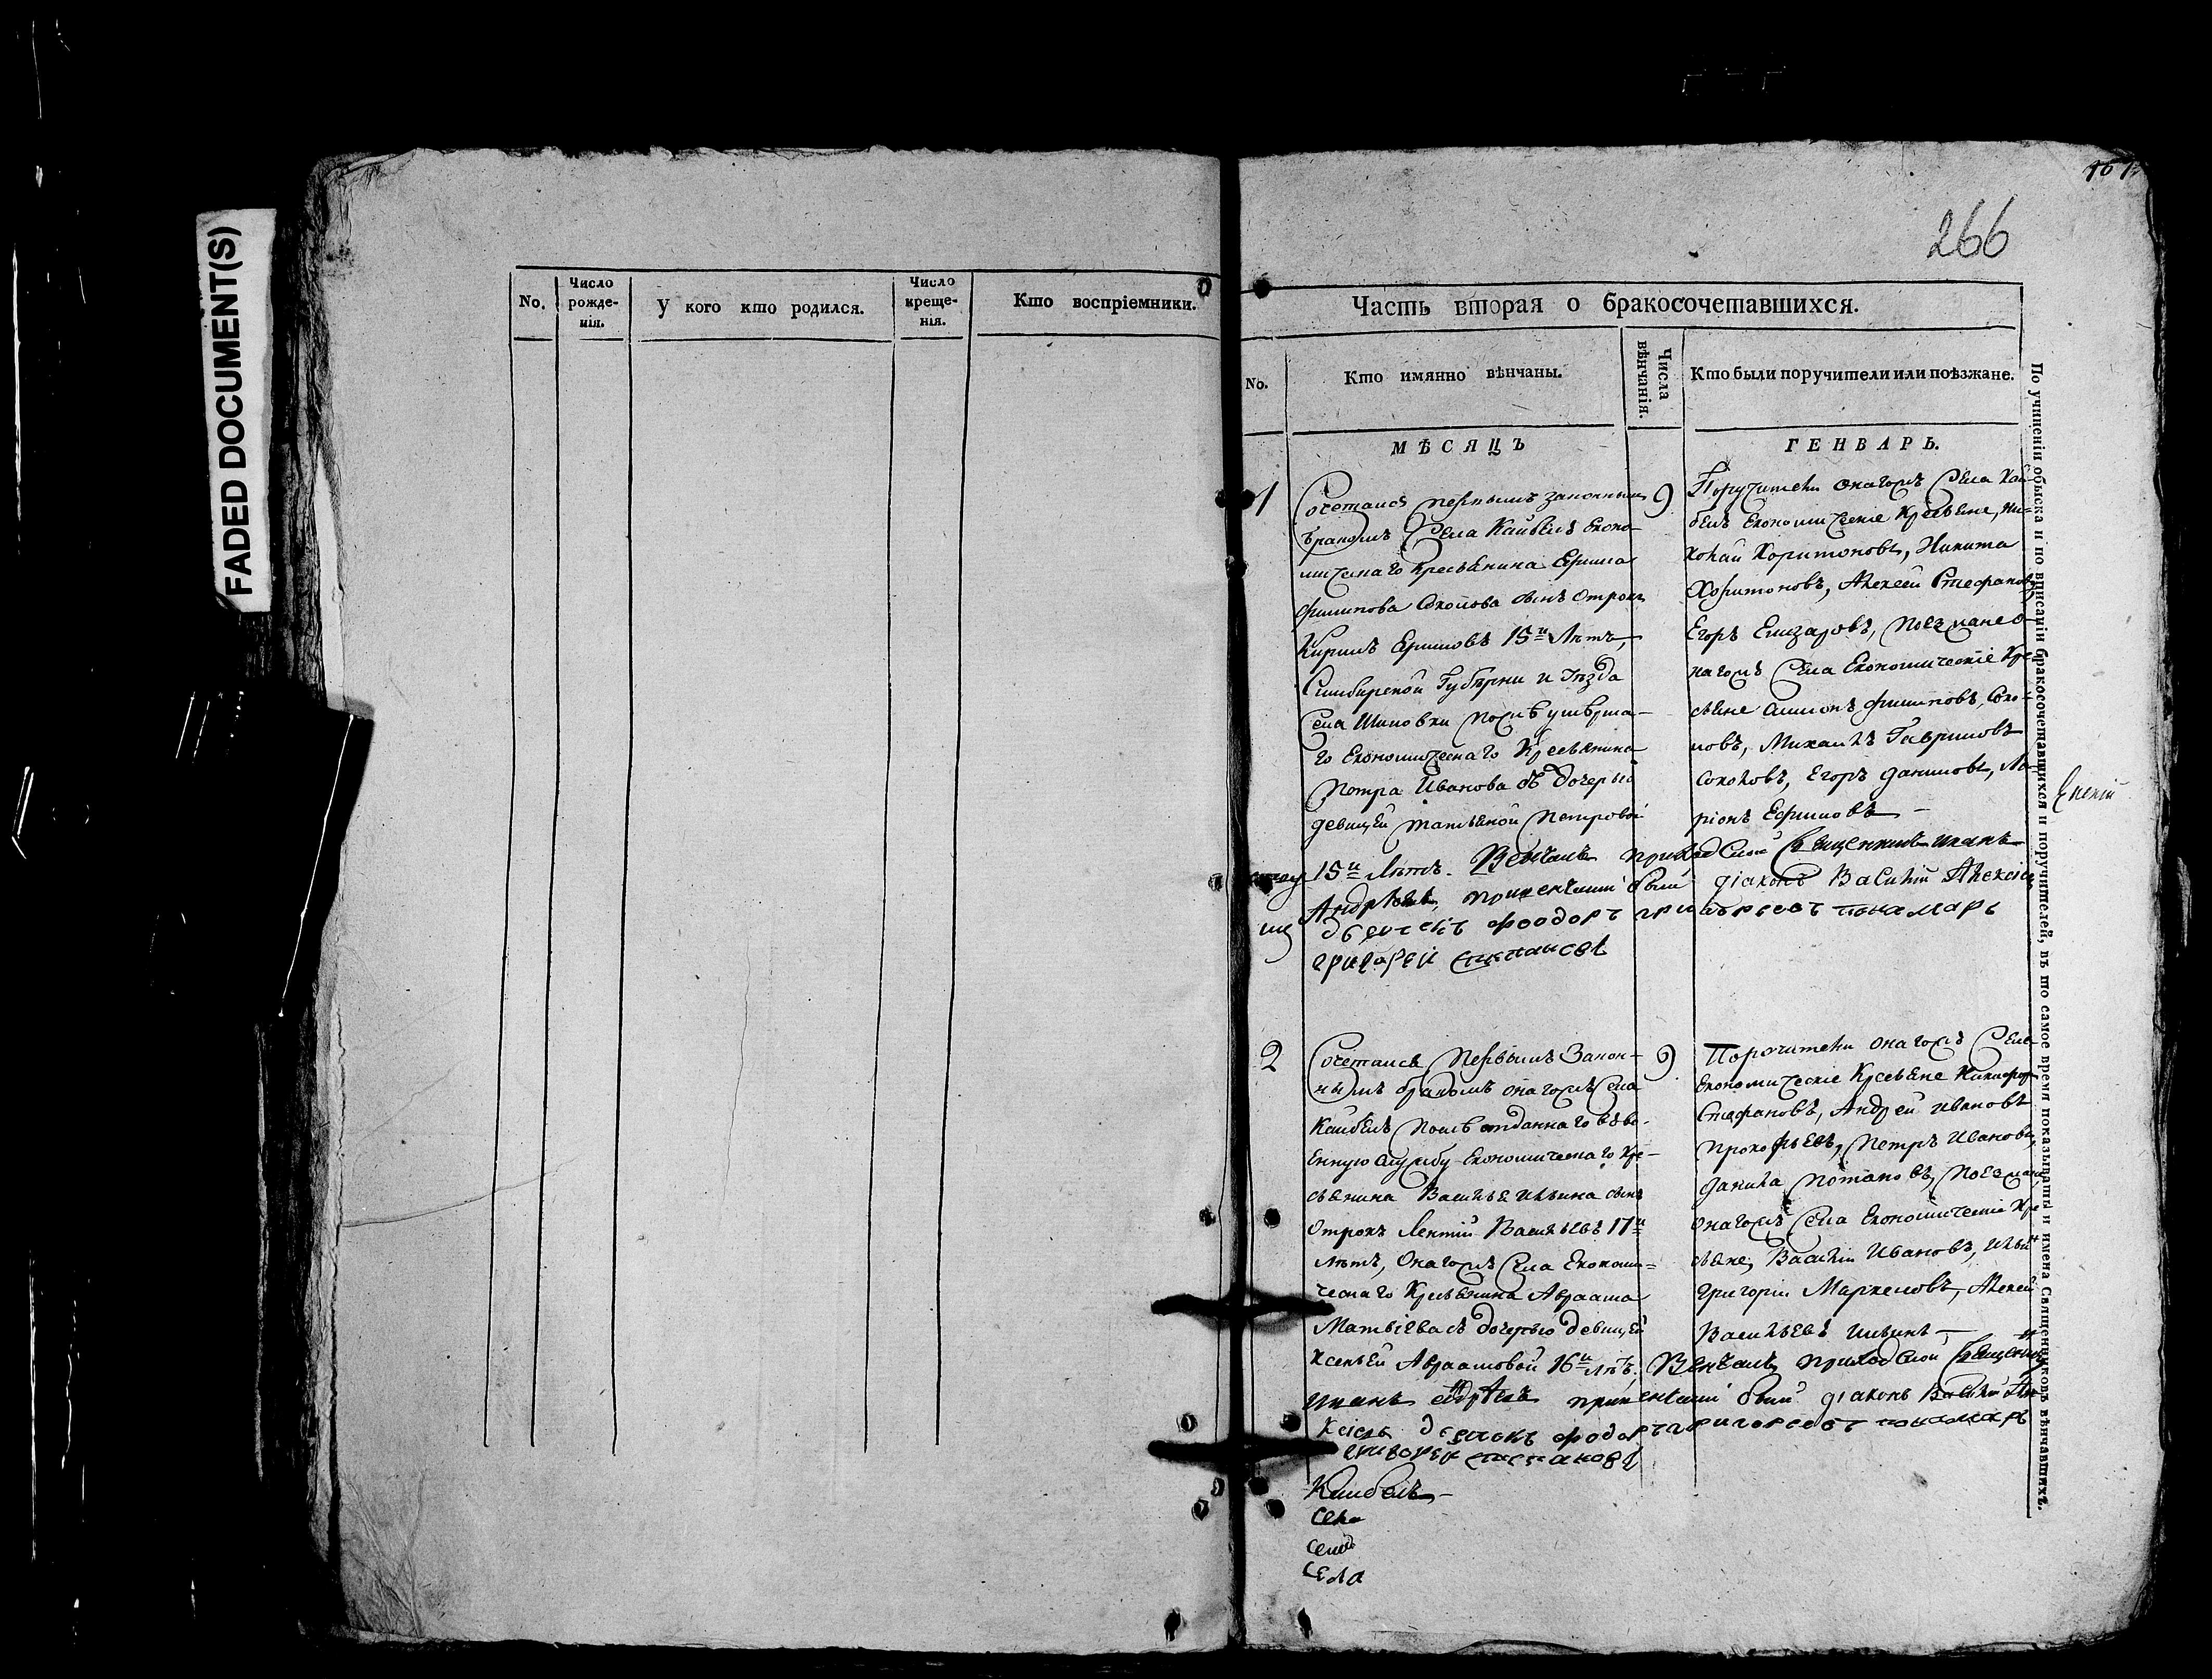 FADED DOCUMENT(S)
No.
Число рожде-
нія.
У кого кто родился.
Число креще-
нія.
Кто воспріемники.
266
Часть вторая о бракосочетавшихся.
No.
Кто имянно вѣнчаны.
Числа вѣнчанія.
Кто были поручители или поѣзжане.
МѢСЯЦЪ
ГЕНВАРЬ.
1
Сочетался первымъ законнымъ
бракомъ Села Кайбелъ Еконо-
мическаго Кресьянина Ефима
Филипова Соколова сынъ Отрокъ
Кирилъ Ефимовъ 15и Лѣтъ,
Симбирской Губерни и Уѣзда
Села Шиловки послѣ умерша-
го Економическаго Кресьянина
Петра Иванова съ дочерью
девицей Татьяной Петровой
15и Лѣтъ. Венчалъ приходской Священникъ Иванъ
Андрѣевъ, при венчании былъ діаконъ Василій Алексіевъ
дьячекъ Феодоръ григорьевъ понамарь
григорей степановъ
9
Поручители онагожъ Села Кай-
белъ Економическіе Кресьяне, Ни-
колай Харитоновъ, Никита
Харитоновъ, Алексей Стефановъ
Егоръ Елизаровъ, Поезжане о-
нагожъ Села Економическіе Кре-
сьяне Симионъ Филиповъ, Соко-
ловъ, Михаилъ Гавриловъ
Соколовъ, Егоръ Даниловъ, Ла-
ріонъ Ефимовъ
2
Сочетался Первымъ Закон-
нымъ бракомъ онагожъ Села
Кайбелъ Послѣ отданнаго въ во-
енную службу Економическаго Кре-
сьянина Василья Ильина сынъ
Отрокъ Лектій Васильевъ 17и
лѣтъ, Онагожъ Села Економи-
ческаго Кресьянина Авраама
Матвіева съ дочерью девицей
Ксеньей Авраамовой 16и лѣтъ. Венчалъ приходской Священникъ
Иванъ Андрѣевъ при венчаніи былъ діаконъ Василій Але-
ксіевъ дьячокъ Фодоръ григорьевъ понамарь
григорей степановъ
9
Поручители онагожъ Села
Економическіе Кресьяне Никифоръ
Стефановъ, Андрей Ивановъ
Прокофьевъ, Петръ Ивановъ,
Данила Потаповъ, Поезжане
онагожъ Села Економическіе Кре-
сьяне, Василій Ивановъ, Ильинъ
Григорій Маркеловъ, Алексей
Васильевъ Ильинъ
Кайбелъ
Села
Села
Села
По учиненіи обыска и по вписаніи бракосочетавшихся и поручителей, въ то самое время показывать и имена Священниковъ вѣнчавшихъ.